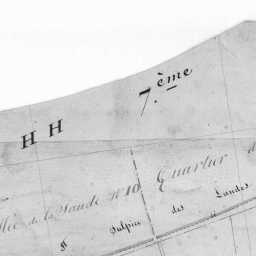 7.ème
H H
de la Saude No 10 Quartier d
St Sulpice des Landes